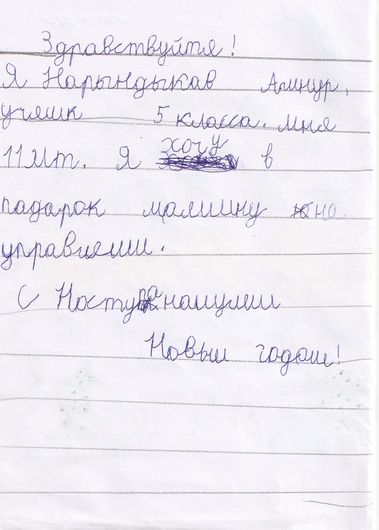 Здравствуйтя!
Я Нарындыкав Алинур,
учяик 5 класса. мня
11 мт. Я хочу в
падарок машину на
управиеии.
С Настурпанаиулии
Новыи годом!